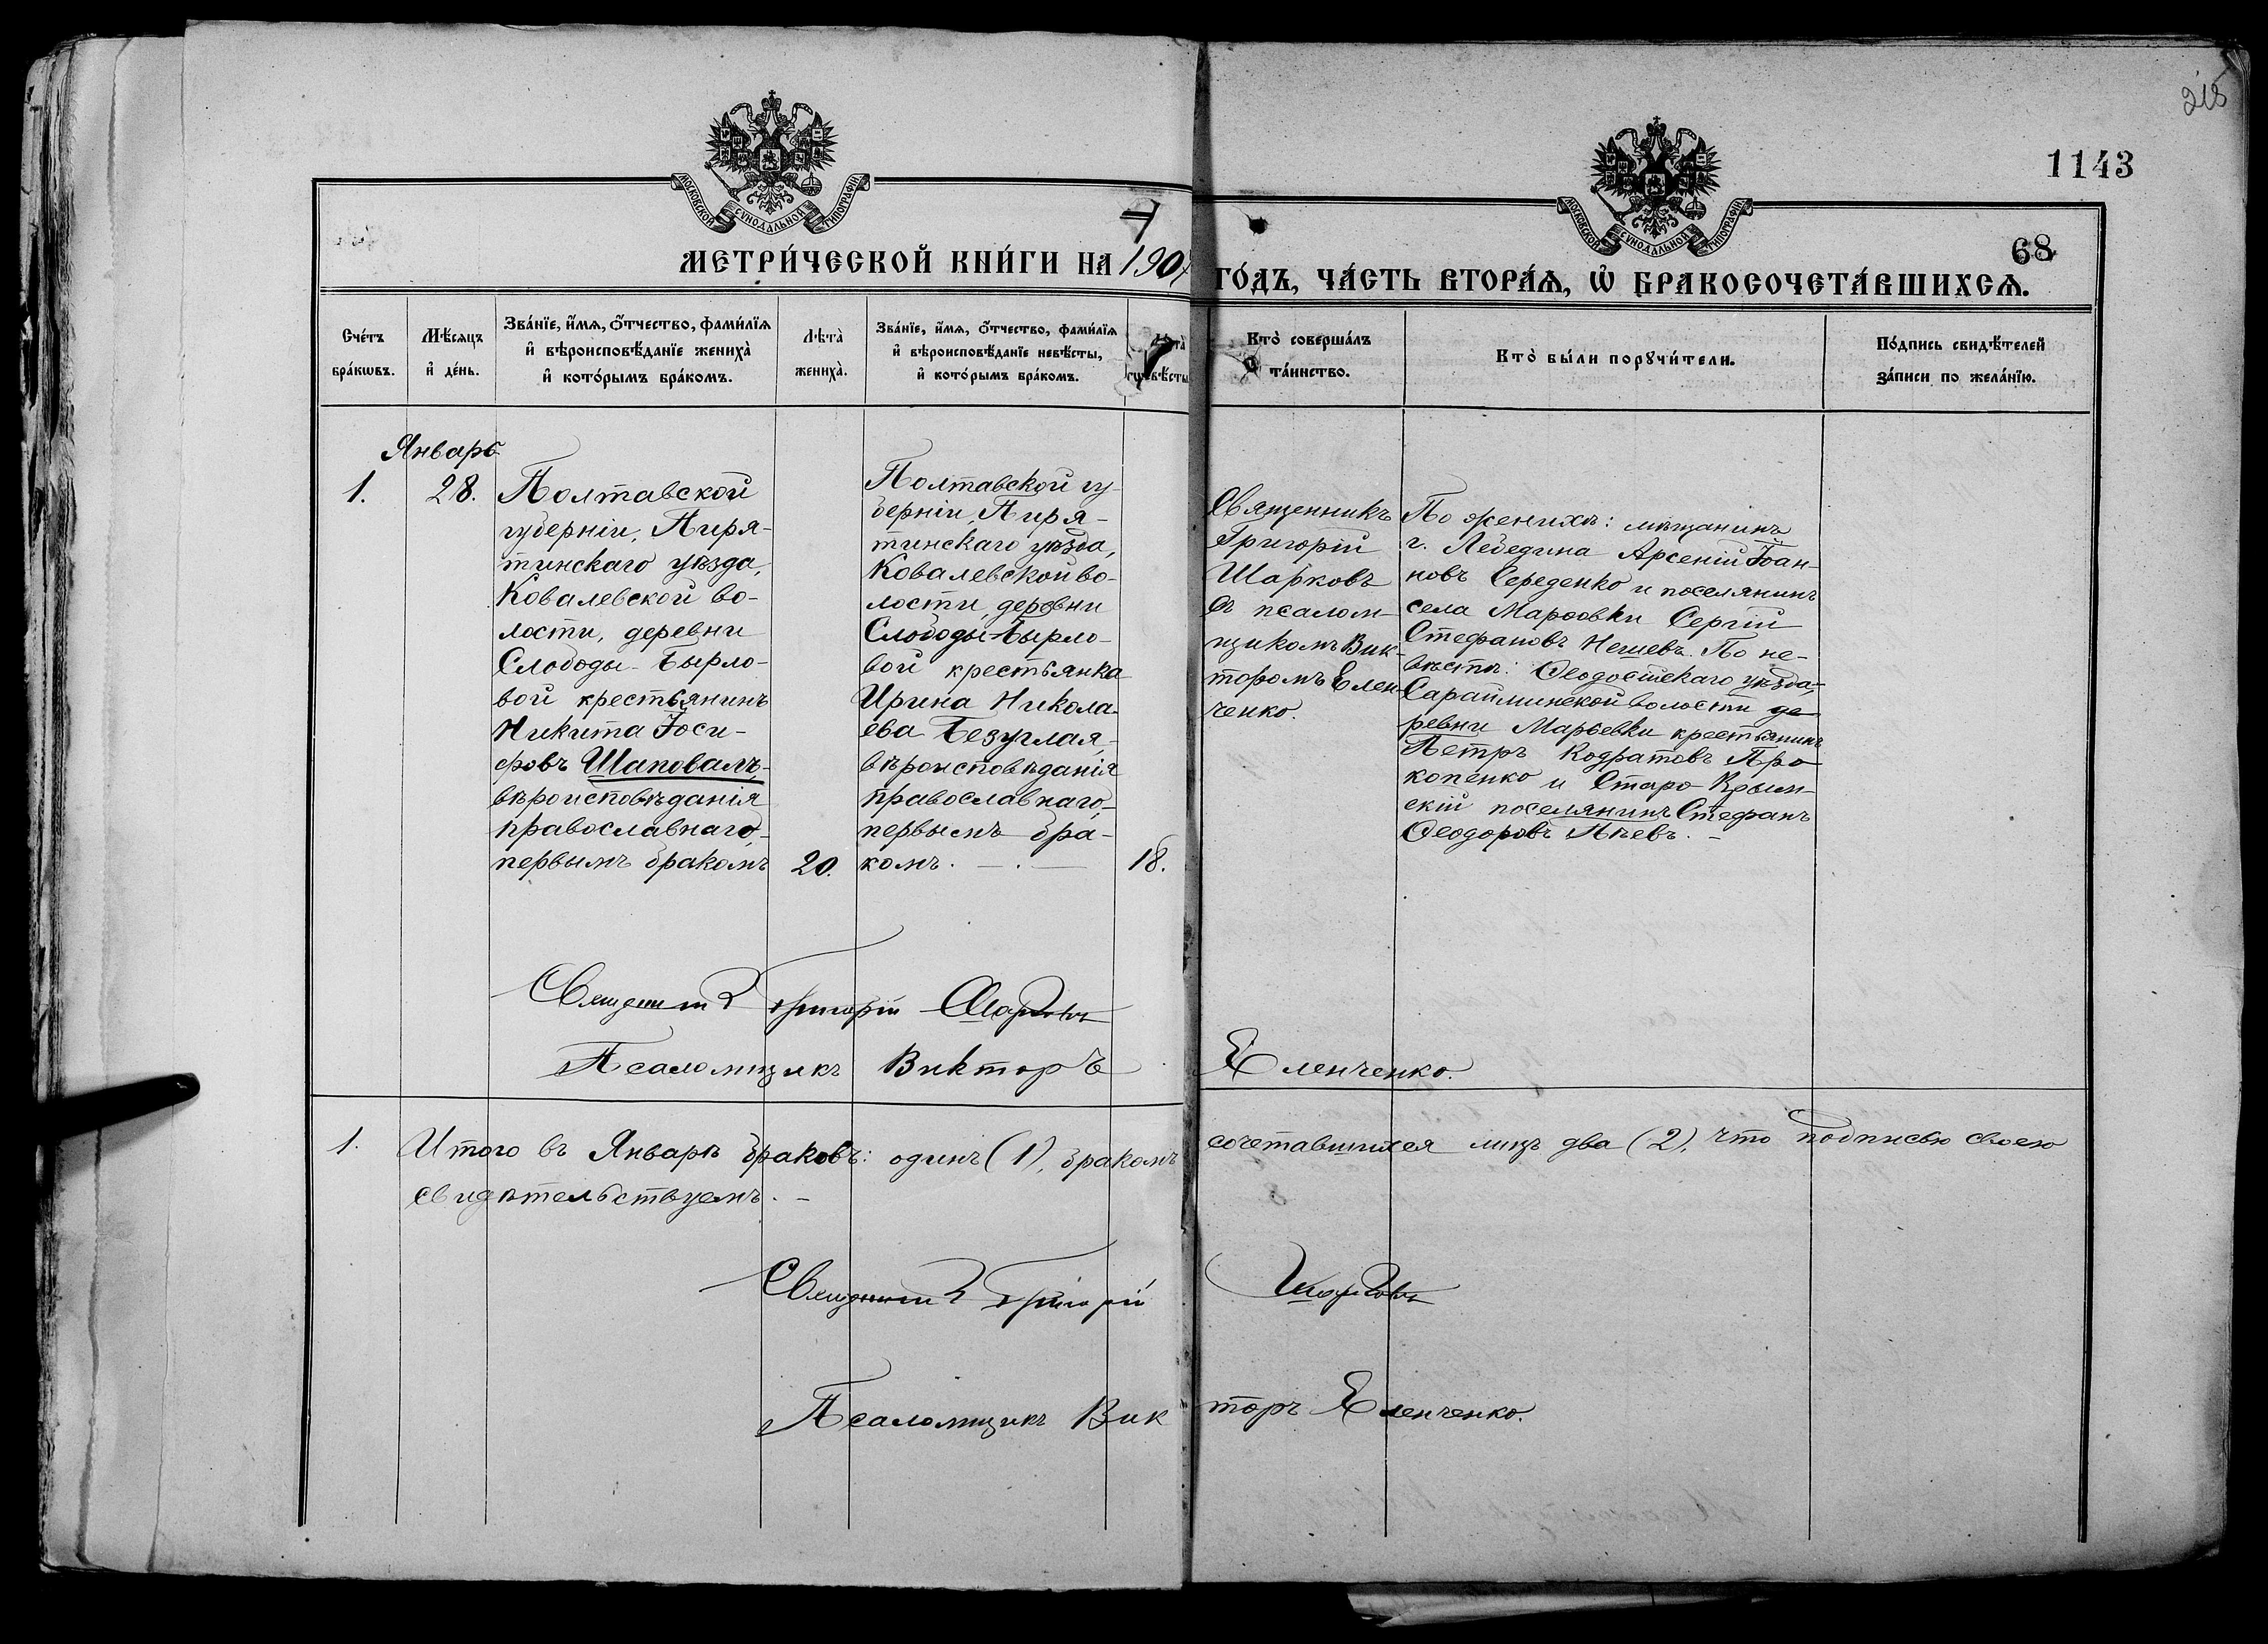 215
1143
68
МОСКОВСКОЙ СУНОДАЛЬНОЙ ТИПОГРАФІИ
МОСКОВСКОЙ СУНОДАЛЬНОЙ ТИПОГРАФІИ
МЕТРИ́ЧЕСКОЙ КНИ́ГИ НА 1907 ГО́ДЪ, ЧА́СТЬ ВТОРА́Ѧ, Ѡ҆ БРАКОСОЧЕТА́ВШИХСѦ.
Сче́тъ
бра́кѡвъ.
Мѣ́сяцъ
и҆ де́нь.
Зва́нїе, и҆́мя, ѻ҆́тчество, фами́лїя
и҆ вѣроисповѣ́данїе жениха̀
и҆ кото́рымъ бра́комъ.
Лѣта̀
жениха̀.
Зва́нїе, и҆́мя, ѻ҆́тчество, фами́лїя
и҆ вѣроисповѣ́данїе невѣ́сты,
и҆ кото́рымъ бра́комъ.
Лѣта̀
невѣ́сты
Кто̀ соверша́лъ
та́инство.
Кто̀ бы́ли порꙋчи́тели.
По́дпись свидѣ́телей
за́писи по жела́нїю.
Январь
1.
28.
Полтавской
губерніи, Пиря-
тинскаго уѣзда,
Ковалевской во-
лости, деревни
Слободы-Бырло-
вой крестьянинъ
Никита Іоси-
фовъ Шаповалъ,
вѣроисповѣданія
православнаго,
первымъ бракомъ
20.
Полтавской гу-
берніи, Пиря-
тинскаго уѣзда,
Ковалевской во-
лости, деревни
Слободы-Бырло-
вой крестьянка
Ирина Никола-
ева Безуглая,
вѣроисповѣданія
православнаго,
первымъ бра-
комъ. — . —
18.
Священникъ
Григорій
Шарковъ
съ псалом-
щикомъ Вик-
торомъ Елен-
ченко.
По женихѣ: мѣщанинъ
г. Лебедина Арсеній Іоан-
новъ Середенко и поселянинъ
села Марфовки Сергій
Стефановъ Нешевъ. По не-
вѣстѣ: Ѳеодосійскаго уѣзда,
Сарайминской волости де-
ревни Марьевки крестьянинъ
Петръ Кодратовъ Про-
копенко и Старо-Крым-
скій поселянинъ Стефанъ
Ѳеодоровъ Пѣевъ. —
Священникъ Григорій Шарковъ
Псаломщикъ Викторъ Еленченко.
1. Итого въ Январѣ браковъ: одинъ (1), бракомъ сочетавшихся лицъ два (2), что подписью своею
свидѣтельствуемъ. —
Священникъ Григорій Шарковъ
Псаломщикъ Викторъ Еленченко.